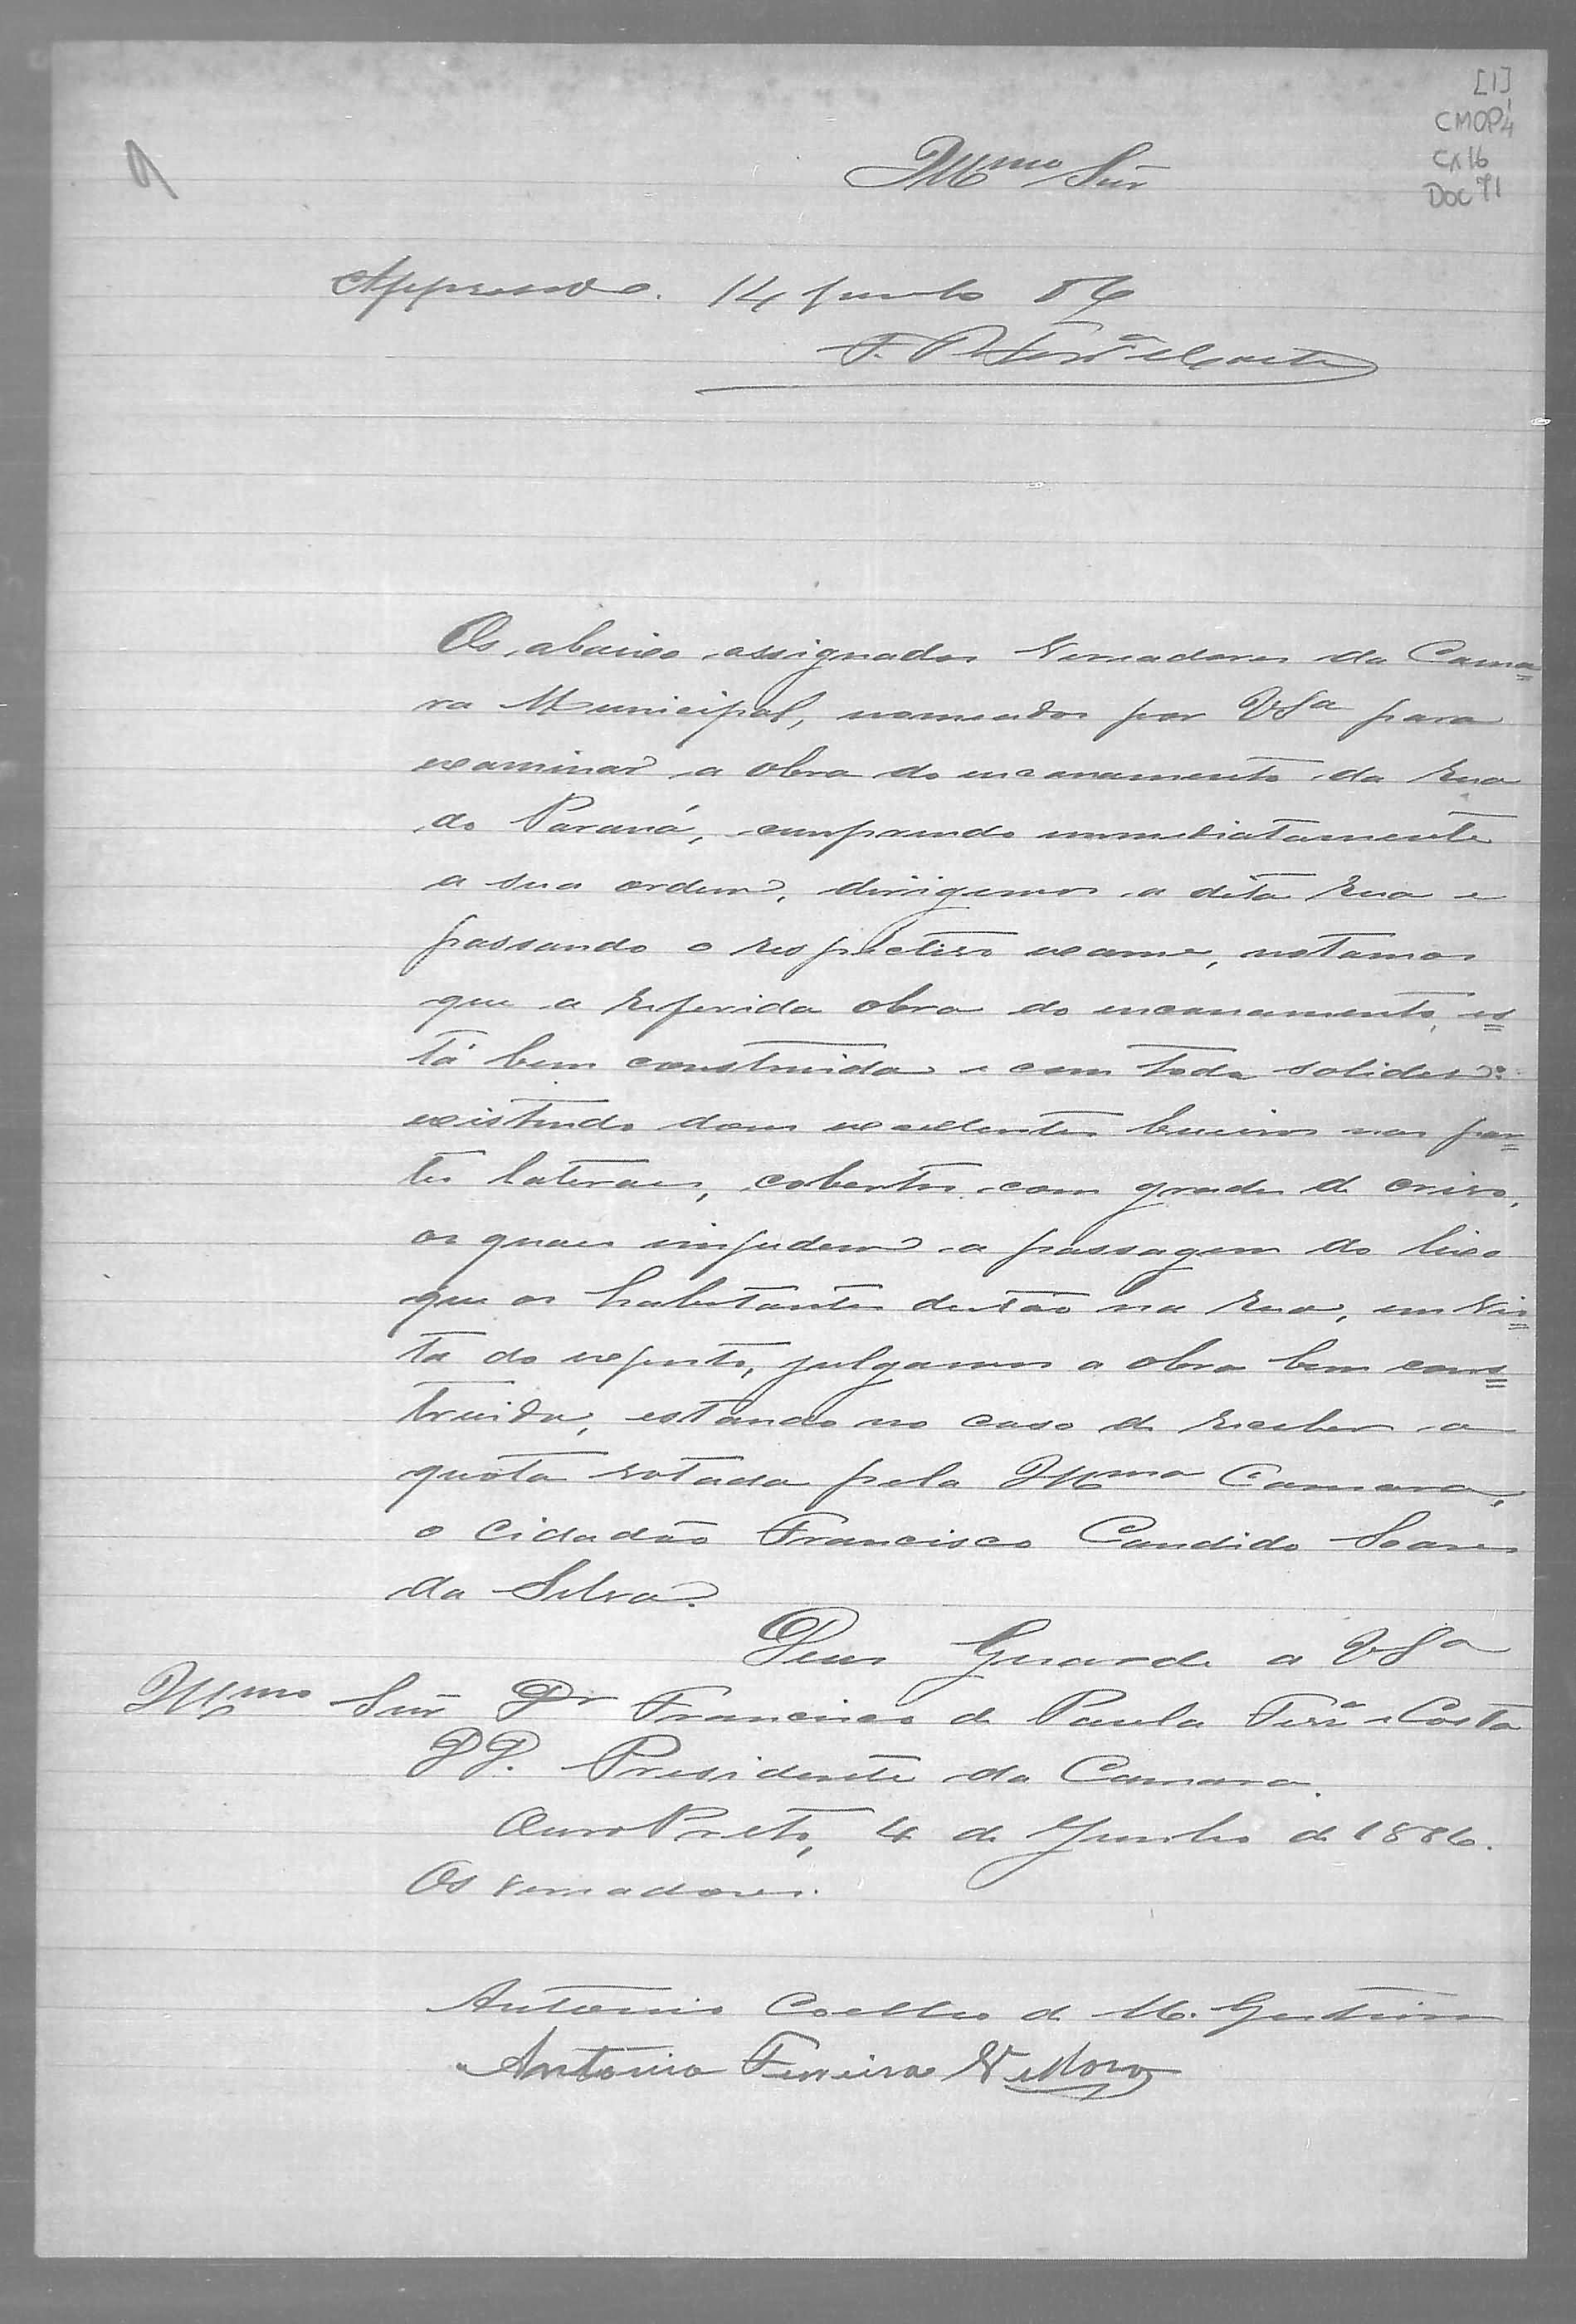 [1]
CMOP 1/4
CX 16
DOC 71
Illmo Snr
Approvado. 14 Junho 86
F. P. Ferrª e Costa
Os abaixo assignados Vereadores da Cama=
ra Municipal, nomeados por VSª para
examinar a obra do encanamento da Rua
do Paraná, cumprindo immediatamente
a sua ordem, dirigimos a dita Rua e
passando o respectivo exame, notamos
que a referida obra do encanamento, es=
tá bem construida e com toda solidez:
existindo dous excellentes bueiros nas par=
tes lateraes, cobertos com grades de crivo,
os quaes impedem a passagem do lixo
que os habitantes deitão na rua, em vis=
ta do exposto, julgamos a obra bem cons=
truida, estando no caso de receber a
quota votada pela Illma Camara,
o Cidadão Francisco Candido Soares
da Silva.
Deus Guarde a VSª
Illmo Snr Dr Francisco de Paula Ferrª e Costa
DD. Presidente da Camara.
Ouro Preto, 4 de Junho de 1886.
Os vereadores.
Antonio Coelho de M.
Antonio Ferreira